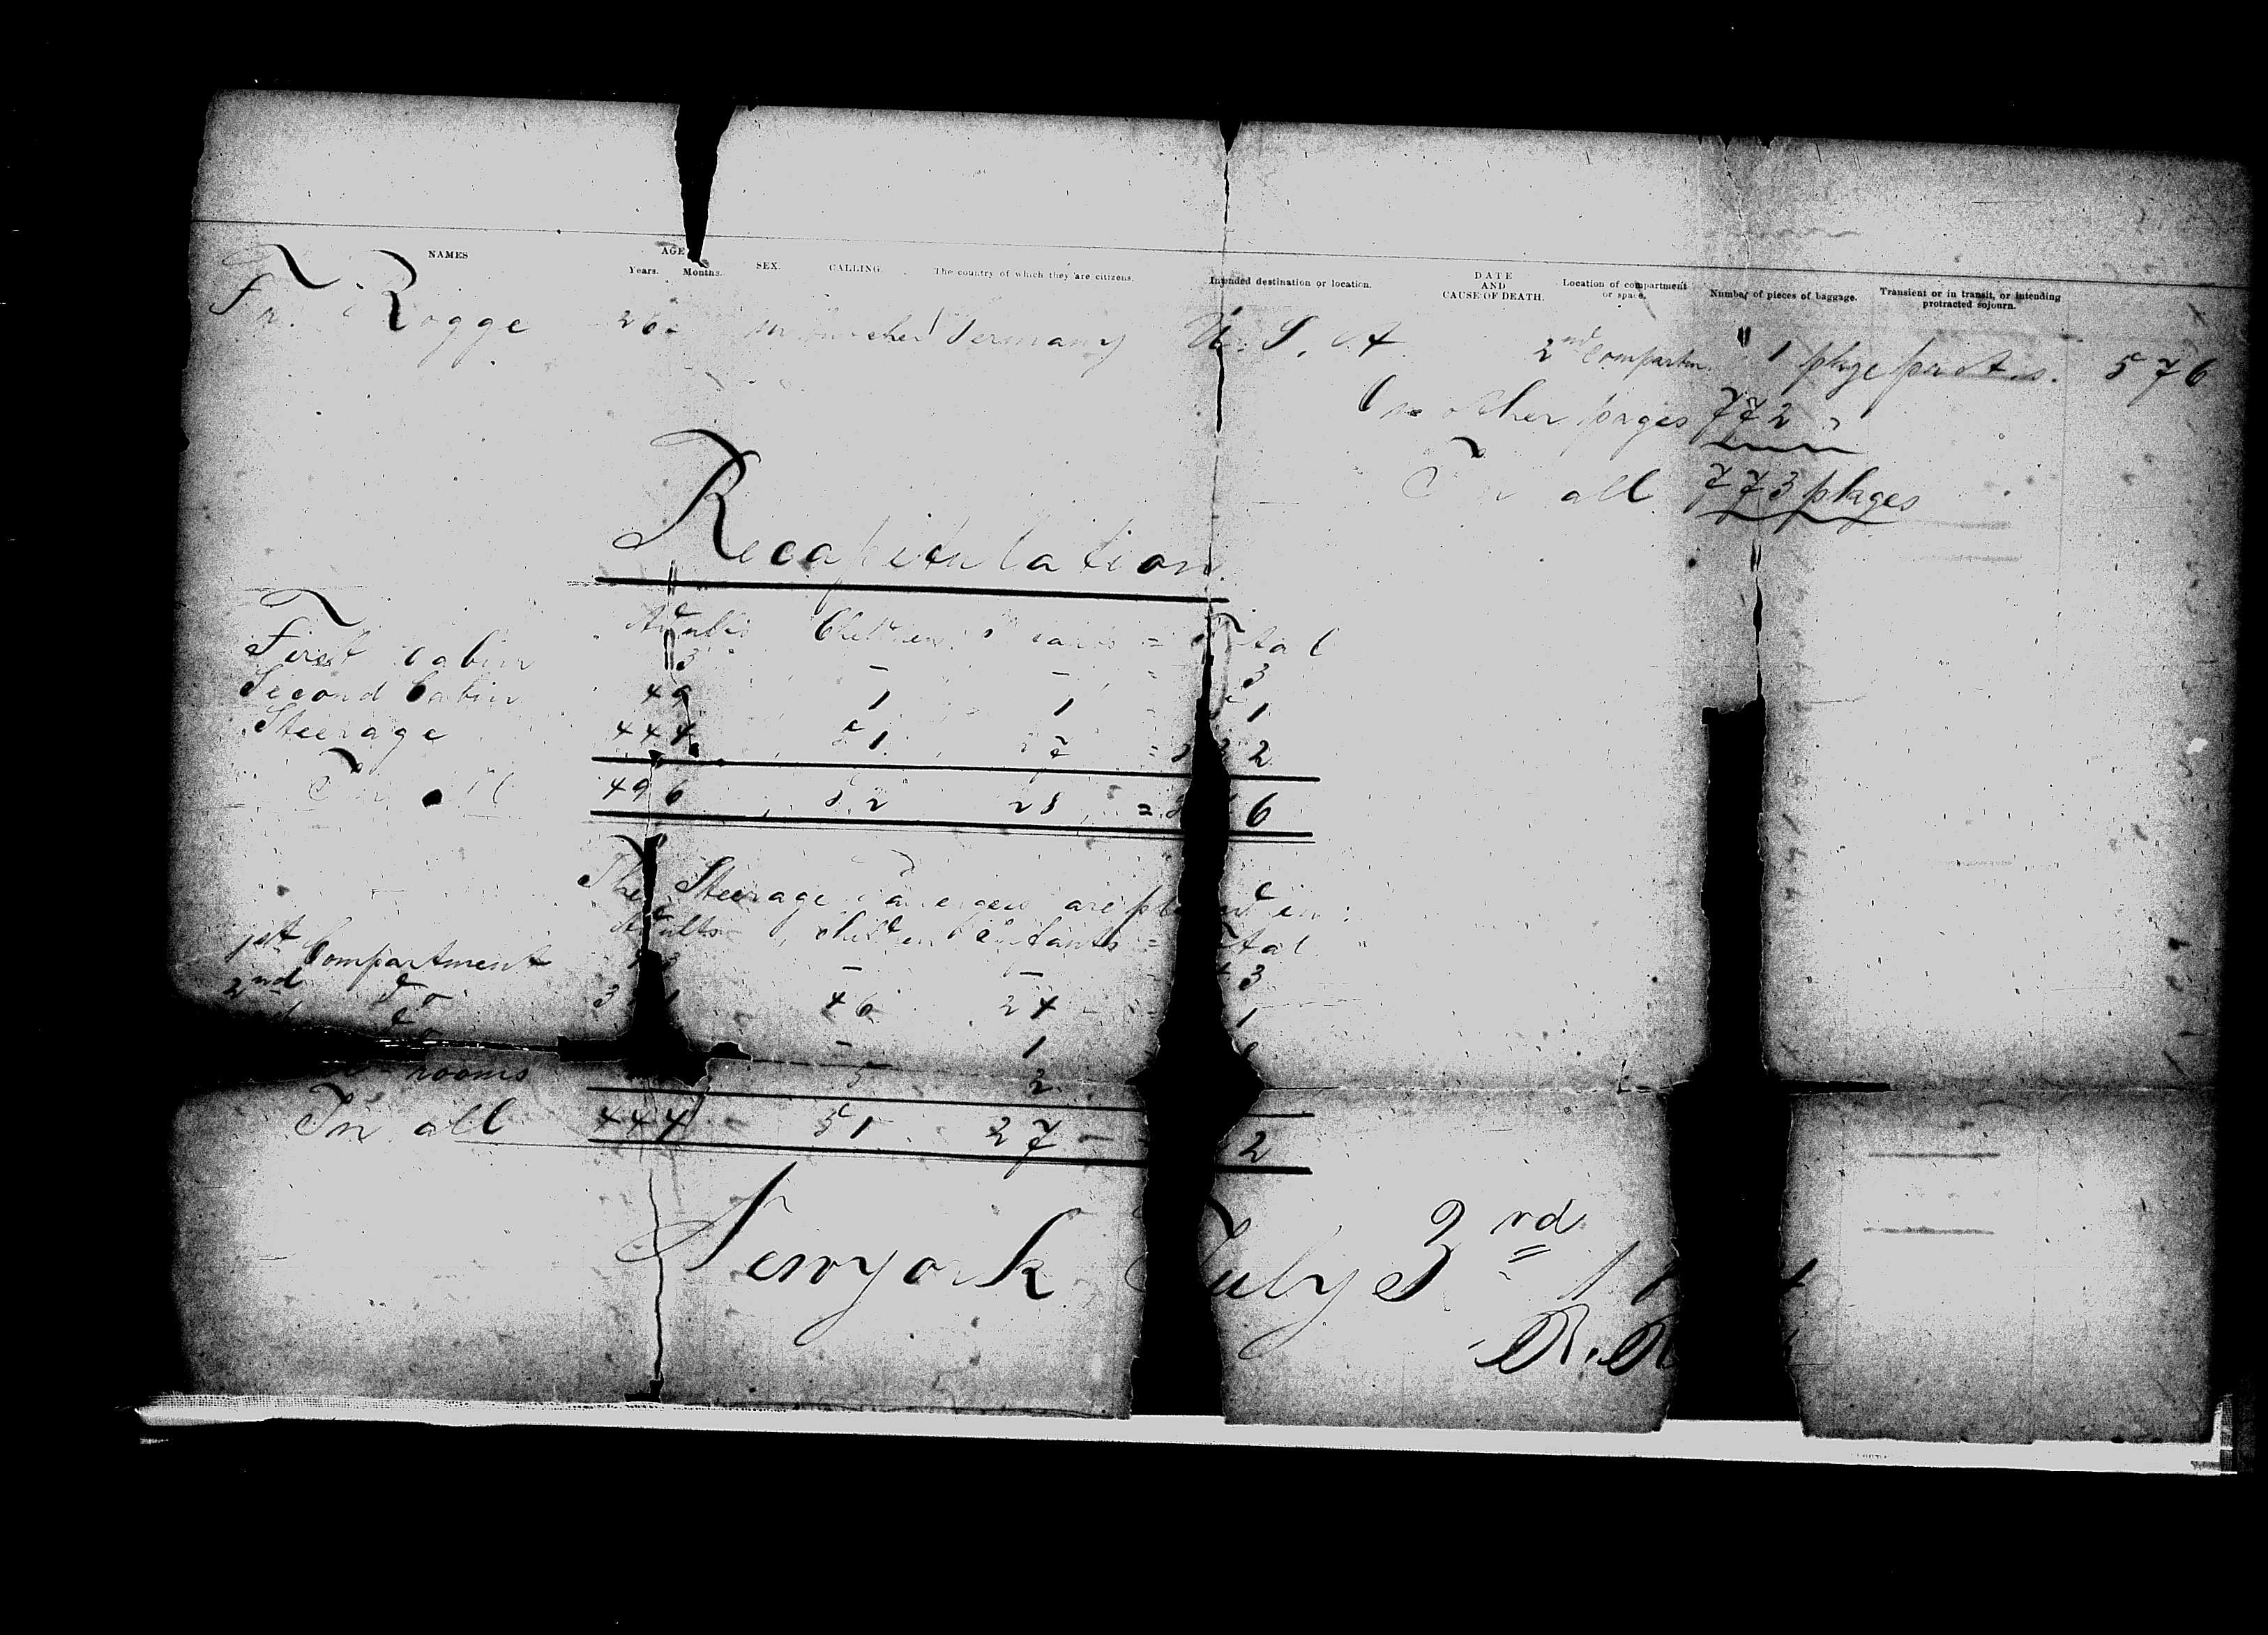 NAMES AGE Years. Months. SEX. CALLING. The country of which they are citizens. Intended destination or location. DATE AND CAUSE OF DEATH. Location of compartment or space. Number of pieces of baggage. Transient or in transit, or intending protracted sojourn.
Fr. Rogge 26 m Germany U. S. A. 2nd Compartm. 1 pkge 576
On other pages 772 "
In all 773 pkages
Recapitulation
Adults Children Total
First Cabin 3 - - = 3
Second Cabin 49 1 1 1
Steerage 444 51 27 = 5 2
In all 496 52 28 = 5 6
The Steerage are in:
Adults children Infants = Total
1st Compartment - - 3
2nd do 3 1 46 24 - 1
do - 1
rooms 5 2
In all 444 - 51 27 - 2
Newyork July 3rd 1
R. R